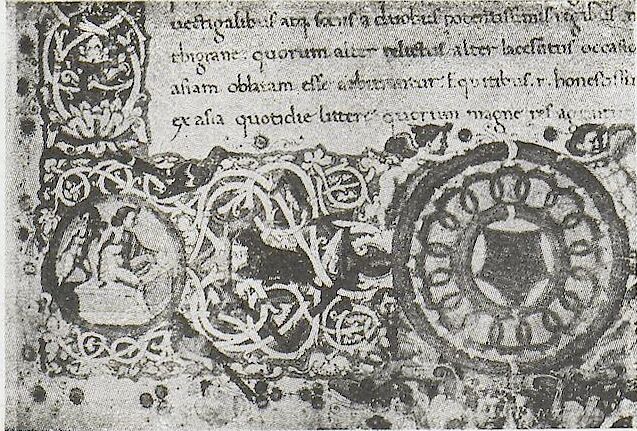 vectigalibus atq; sociis a duobus potentissimis regibus
thigrane: quorum alter relictus alter lacessitus occasio
asiam oblatam esse arbitrantur. Equitibus. r. honestissi
ex asia quotidie littere quorum magne res aguntur